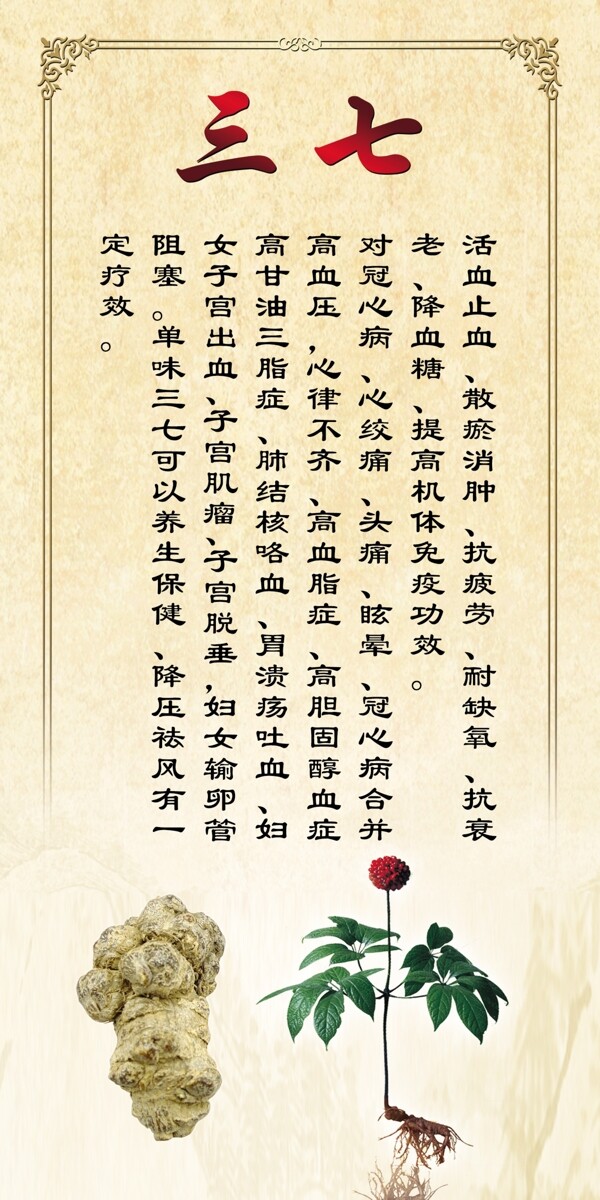 三七
活血止血、散瘀消肿、抗疲劳、耐缺氧、抗衰
老、降血糖、提高机体免疫功效。
对冠心病、心绞痛、头痛、眩晕、冠心病合并
高血压，心律不齐、高血脂症、高胆固醇血症
高甘油三脂症、肺结核咯血、胃溃疡吐血、妇
女子宫出血、子宫肌瘤、子宫脱垂，妇女输卵管
阻塞。单味三七可以养生保健、降压祛风有一
定疗效。